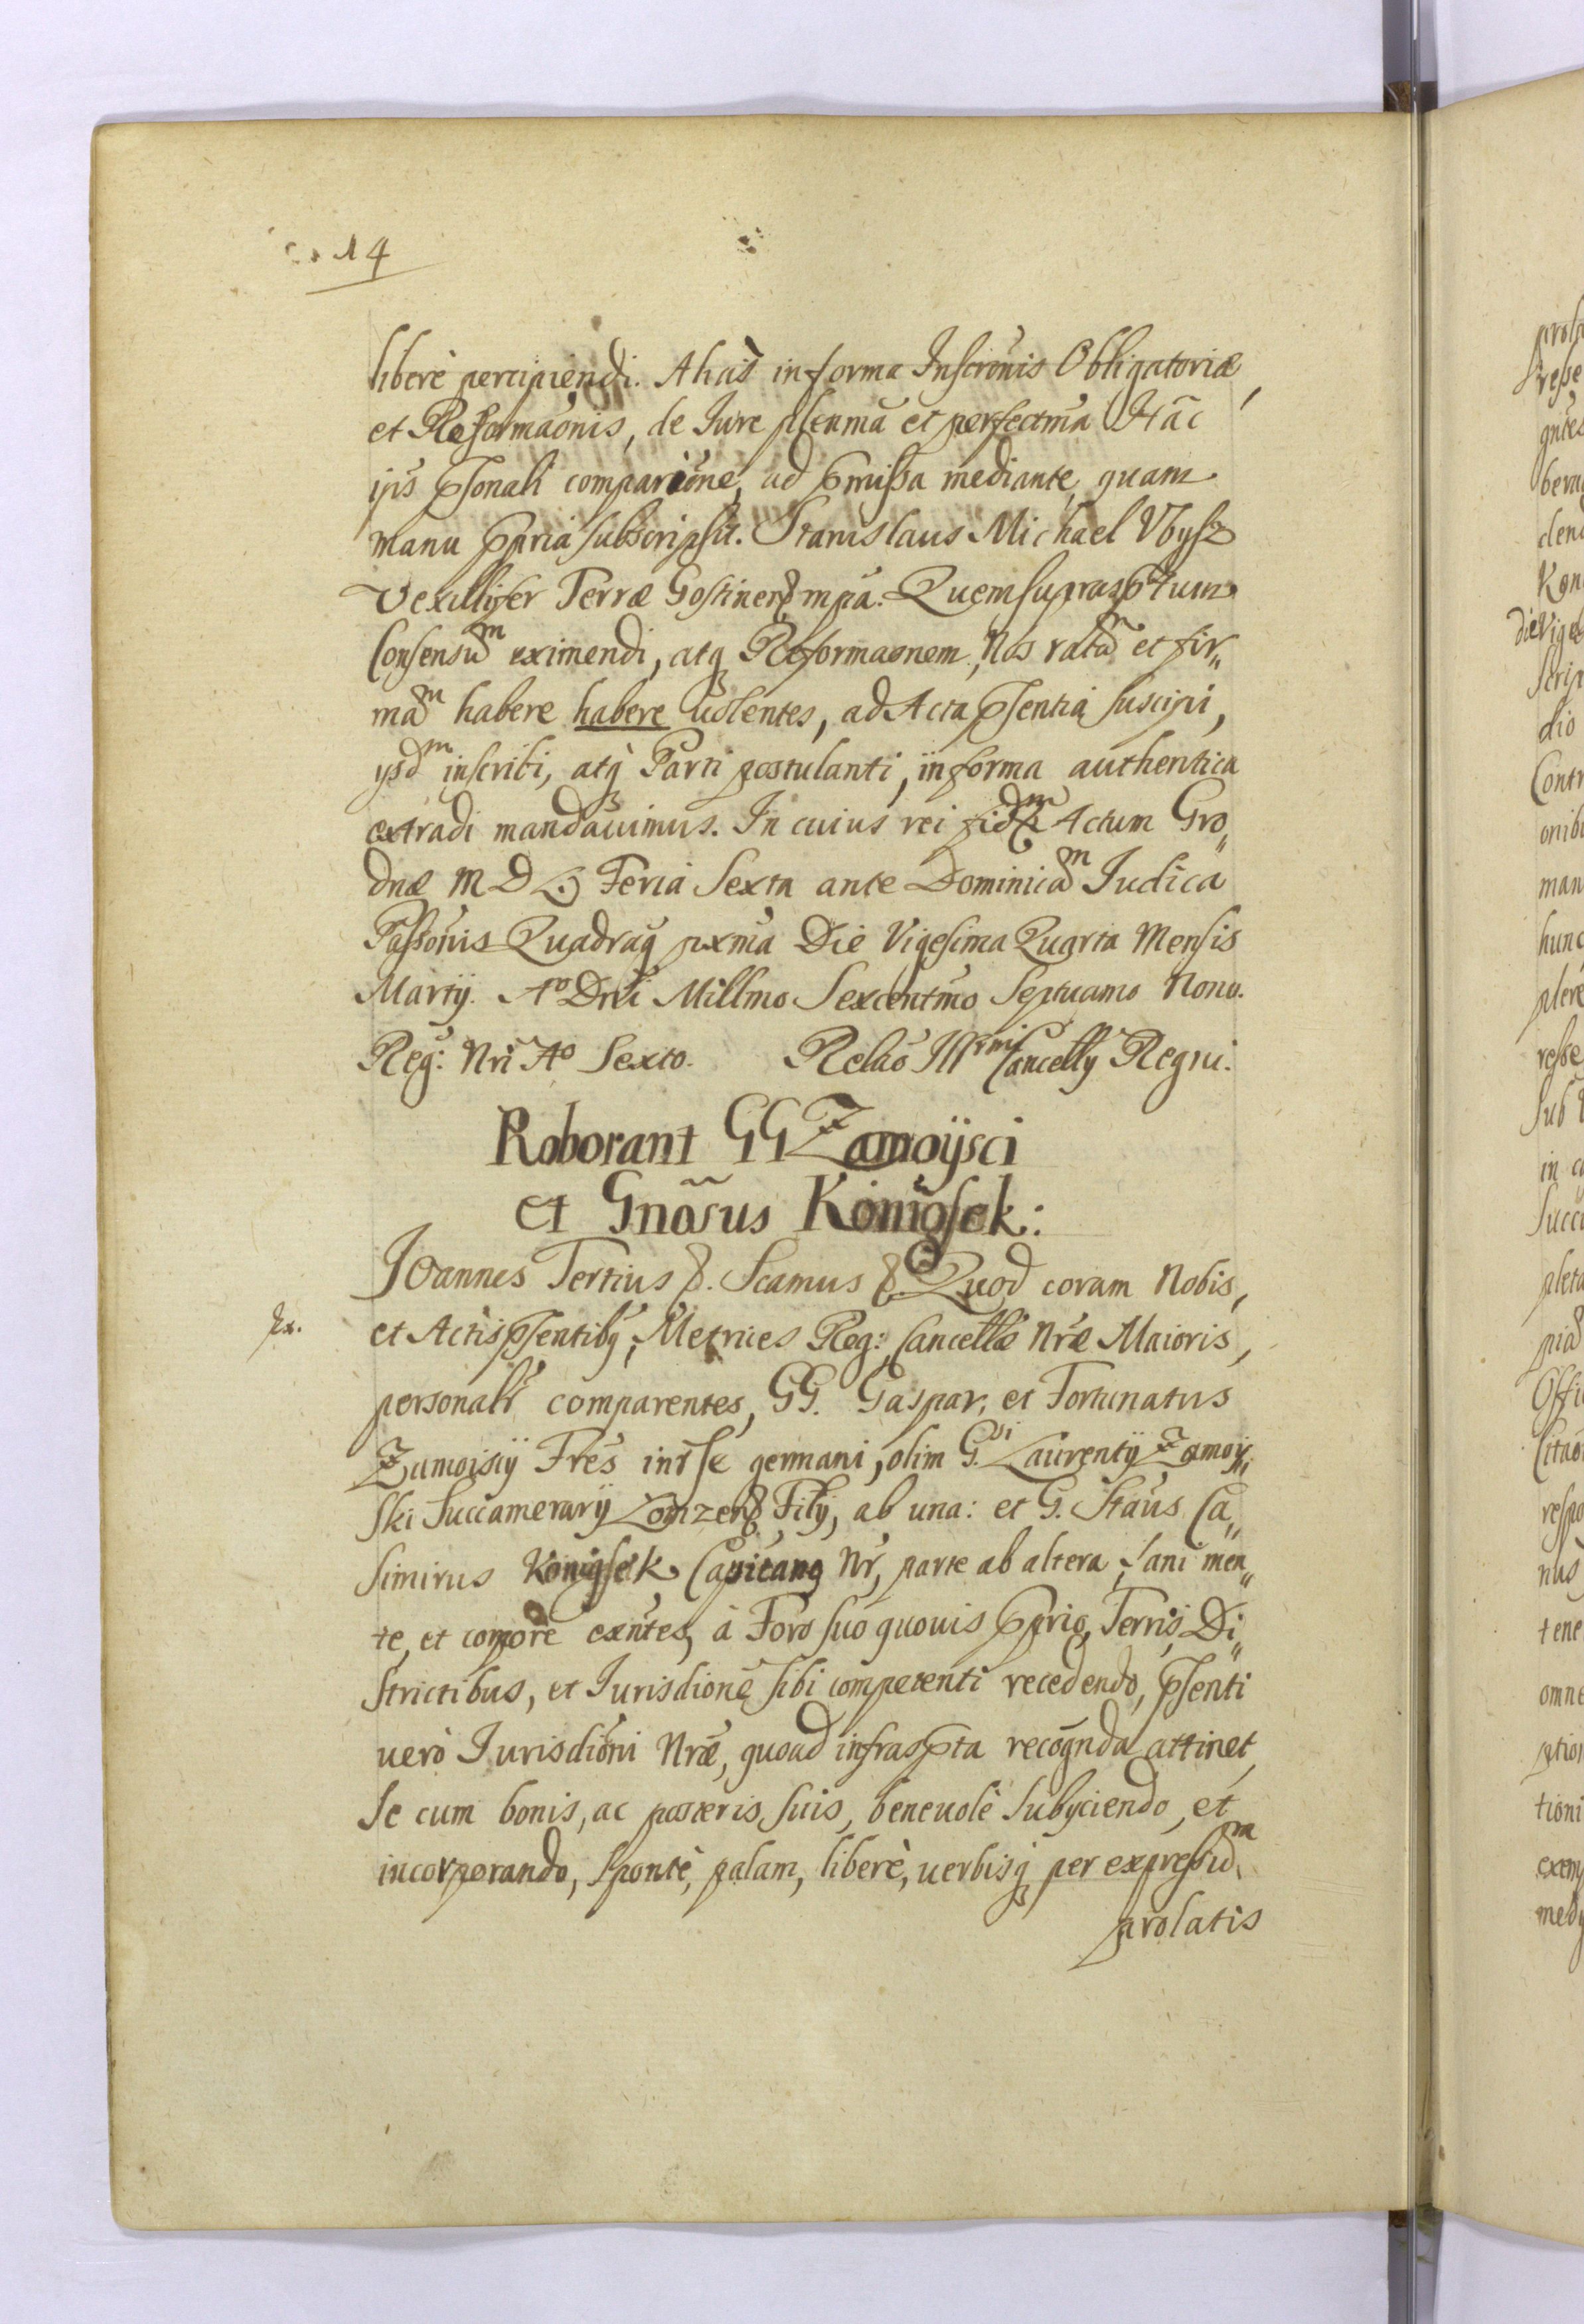 14
liberè percipiendi. Alias in forma Inscrōnis Obligatoriæ,
et Reformaōnis, de Iure plenmā et perfectmā Hac
ips psonali compariōne, ad pmissa mediante, quam
manu ppria subscripsit. Stanislaus Michael Vbysz
Vexillifer Terræ Gostinens mpā. Quem suprasptum
Consensūm eximendi, atq Reformaonem, Nos ratām et fir„
mām habere habere uolentes, ad Acta psentia suscipi,
ysdm inscribi, atq Parti postulanti, in forma authentica
extradi mandauimus. In cuius rei fidm Actum Gro„
dnæ Feria Sexta ante Dominicām Iudica
Passōnis Quadrag pxmā Die Vigesima Quarta Mensis
Martij. Ao Dnī Millmo Sexcentmo Septuamo Nono.
Reg: Nrī Ao Sexto. Relaō Illrmi Cancellÿ Regni.
Roborant GG Zamoÿsci
et Gnōsus Königsek:
Joannes Tertius &. Scamus &. Quod coram Nobis,
Ex.
et Actis psentibq, Metrices Reg: Cancellæ Nræ Maioris,
personalr comparentes, GG. Gaspar, et Fortunatus
Zamoiscij Frēs intr se germani, olim G.si Laurentij Zamoy„
ski Succamerarij Lomzens Filij, ab una: et G. Staūs Ca„
simirus Königsek Capitang Nr, parte ab altera, sani men„
te, et corpore exntes, à Foro suo quouis pprio, Terris, Di„
strictibus, et Iurisdione sibi competenti recedendo, psenti
uerò Iurisdiōni Nræ, quoad infraspta recognda attinet,
se cum bonis, ac posteris suis, beneuolè subijciendo, et
incorporando, spontè, palam, liberè, uerbisq per expressūm
prolatis